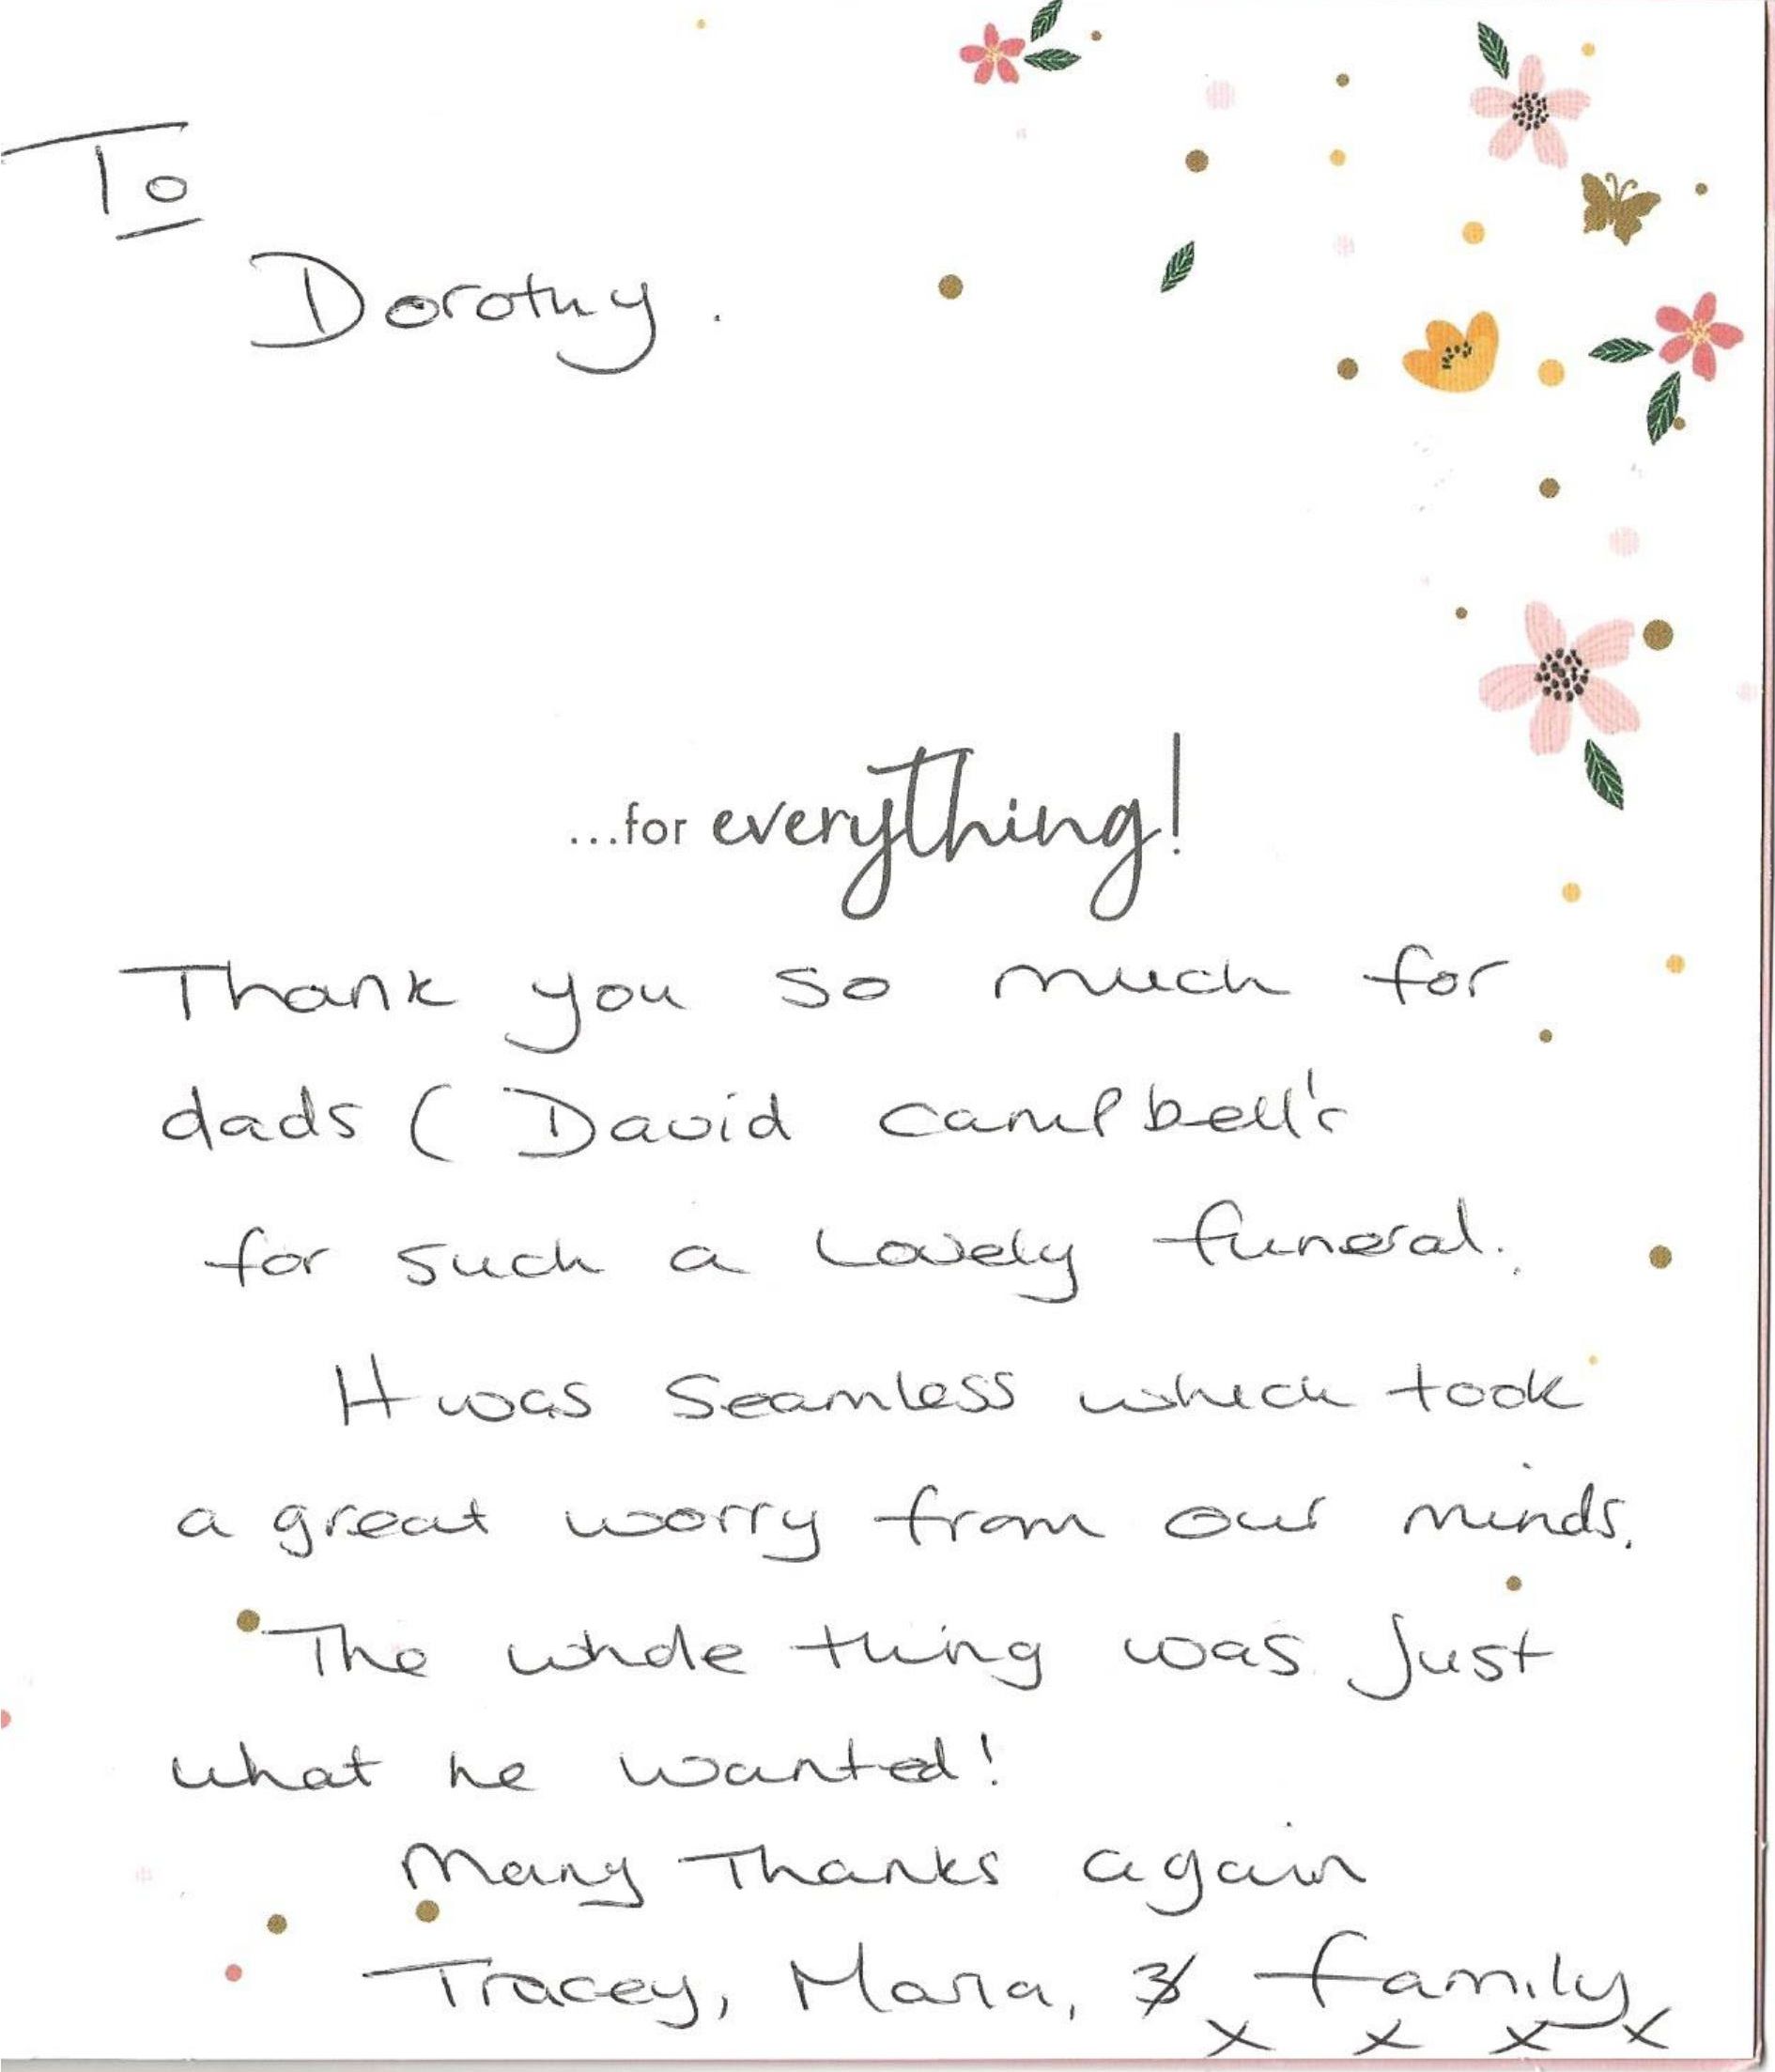 To
Dorothy.
...for everything!
Thank you so much for
dads ( David Campbell's
for such a Lovely funeral.
It was Seamless which took
a great worry from our minds.
The whole thing was Just
what he wanted!
Many Thanks again
Tracey, Maria, & family
x x x x